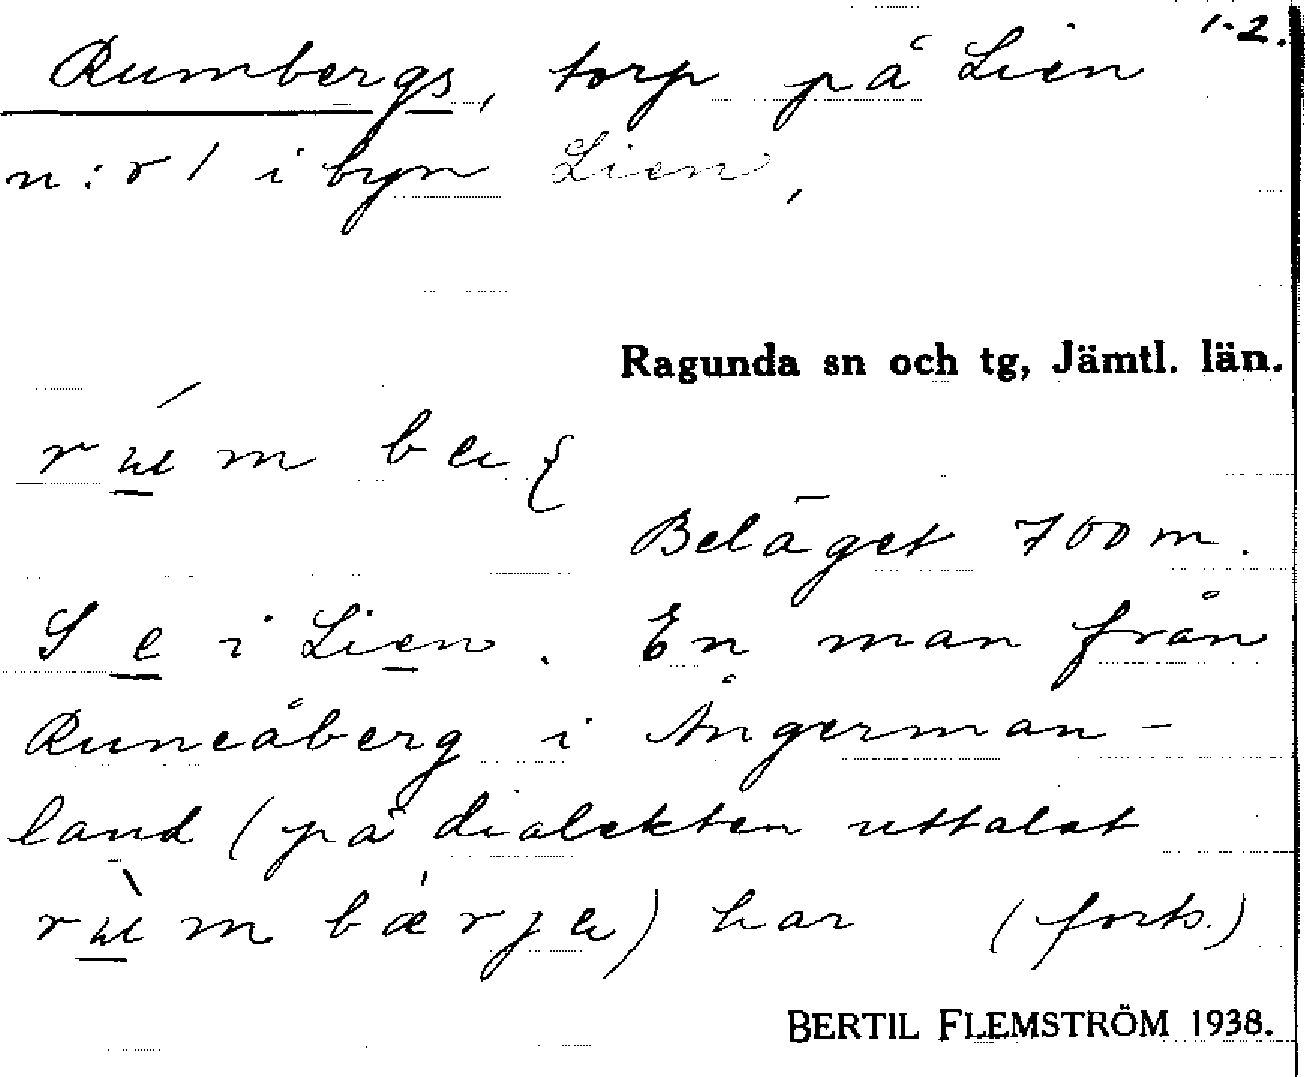 1-2.
Rumbergs, torp på Lien
n:r 1 i byn Lien,
Ragunda sn och tg, Jämtl. län.
Beläget 700 m.
S e i Lien. En man från
Runeåberg i Ångerman-
land (på dialekten uttalat
har (forts.)
BERTIL FLEMSTRÖM 1938.